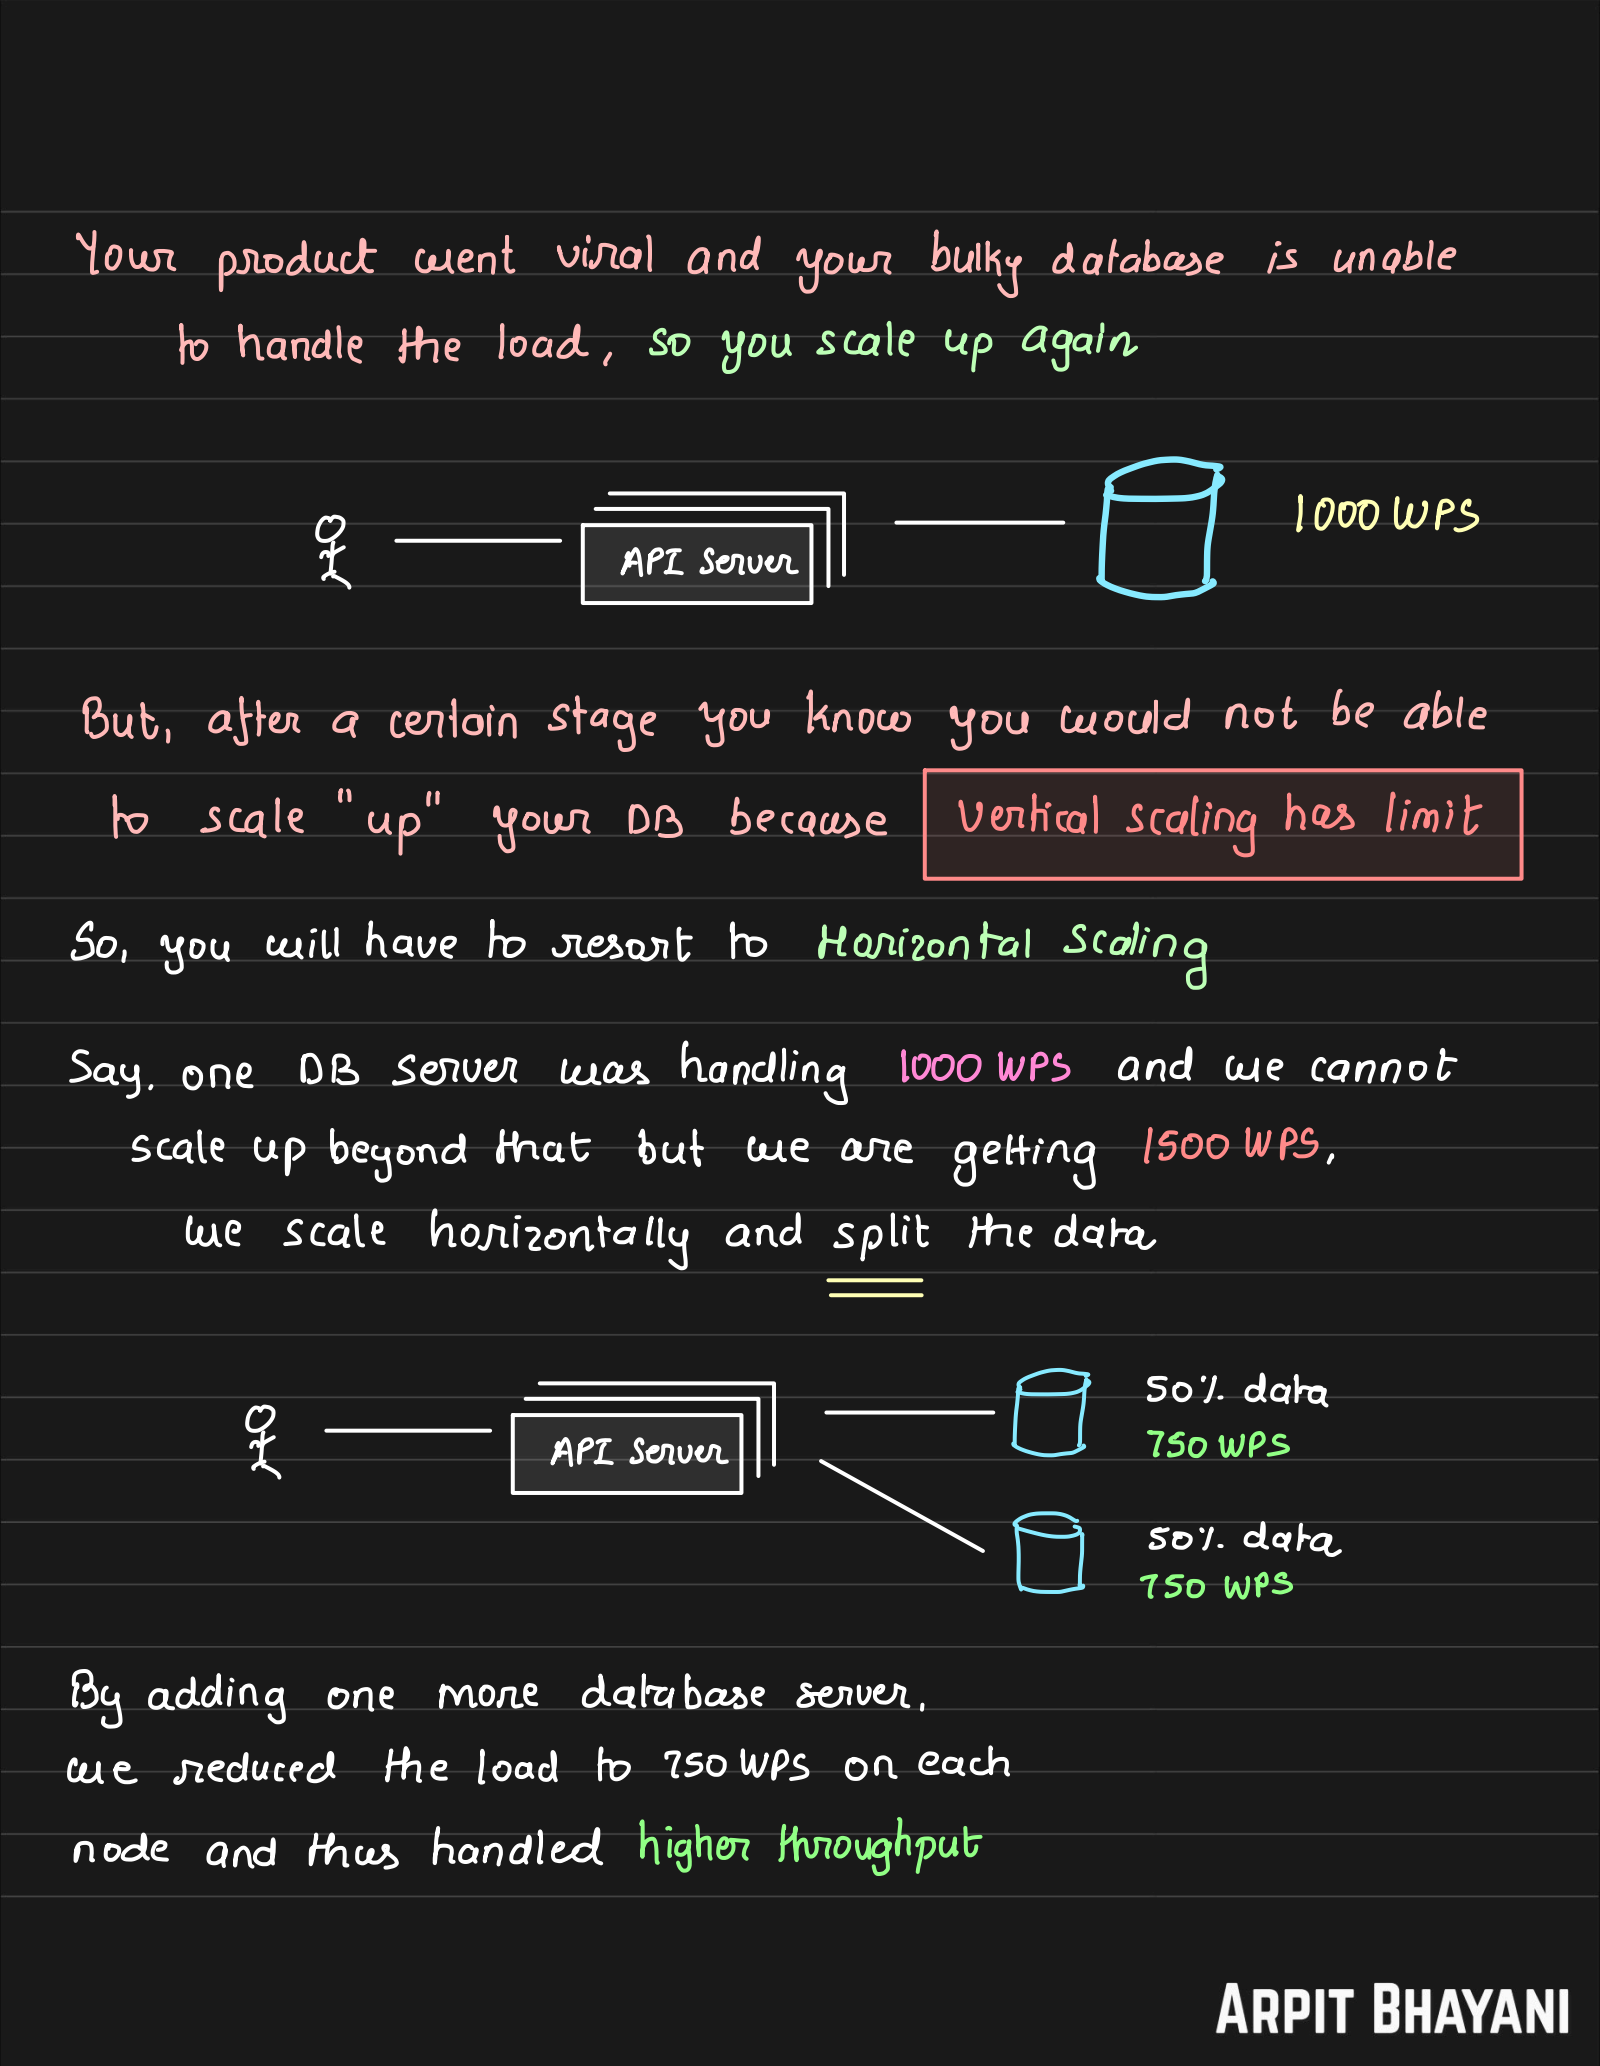 Your product went viral and your bulky database is unable
to handle the load, so you scale up again
API Server
1000 WPS
But, after a certain stage you know you would not be able
to scale "up" your DB because vertical scaling has limit
So, you will have to resort to Horizontal Scaling
Say, one DB server was handling 1000 WPS and we cannot
scale up beyond that but we are getting 1500 WPS,
we scale horizontally and split the data
50% data
750 WPS
API Server
50% data
750 WPS
By adding one more database server,
we reduced the load to 750 WPS on each
node and thus handled higher throughput
ARPIT BHAYANI